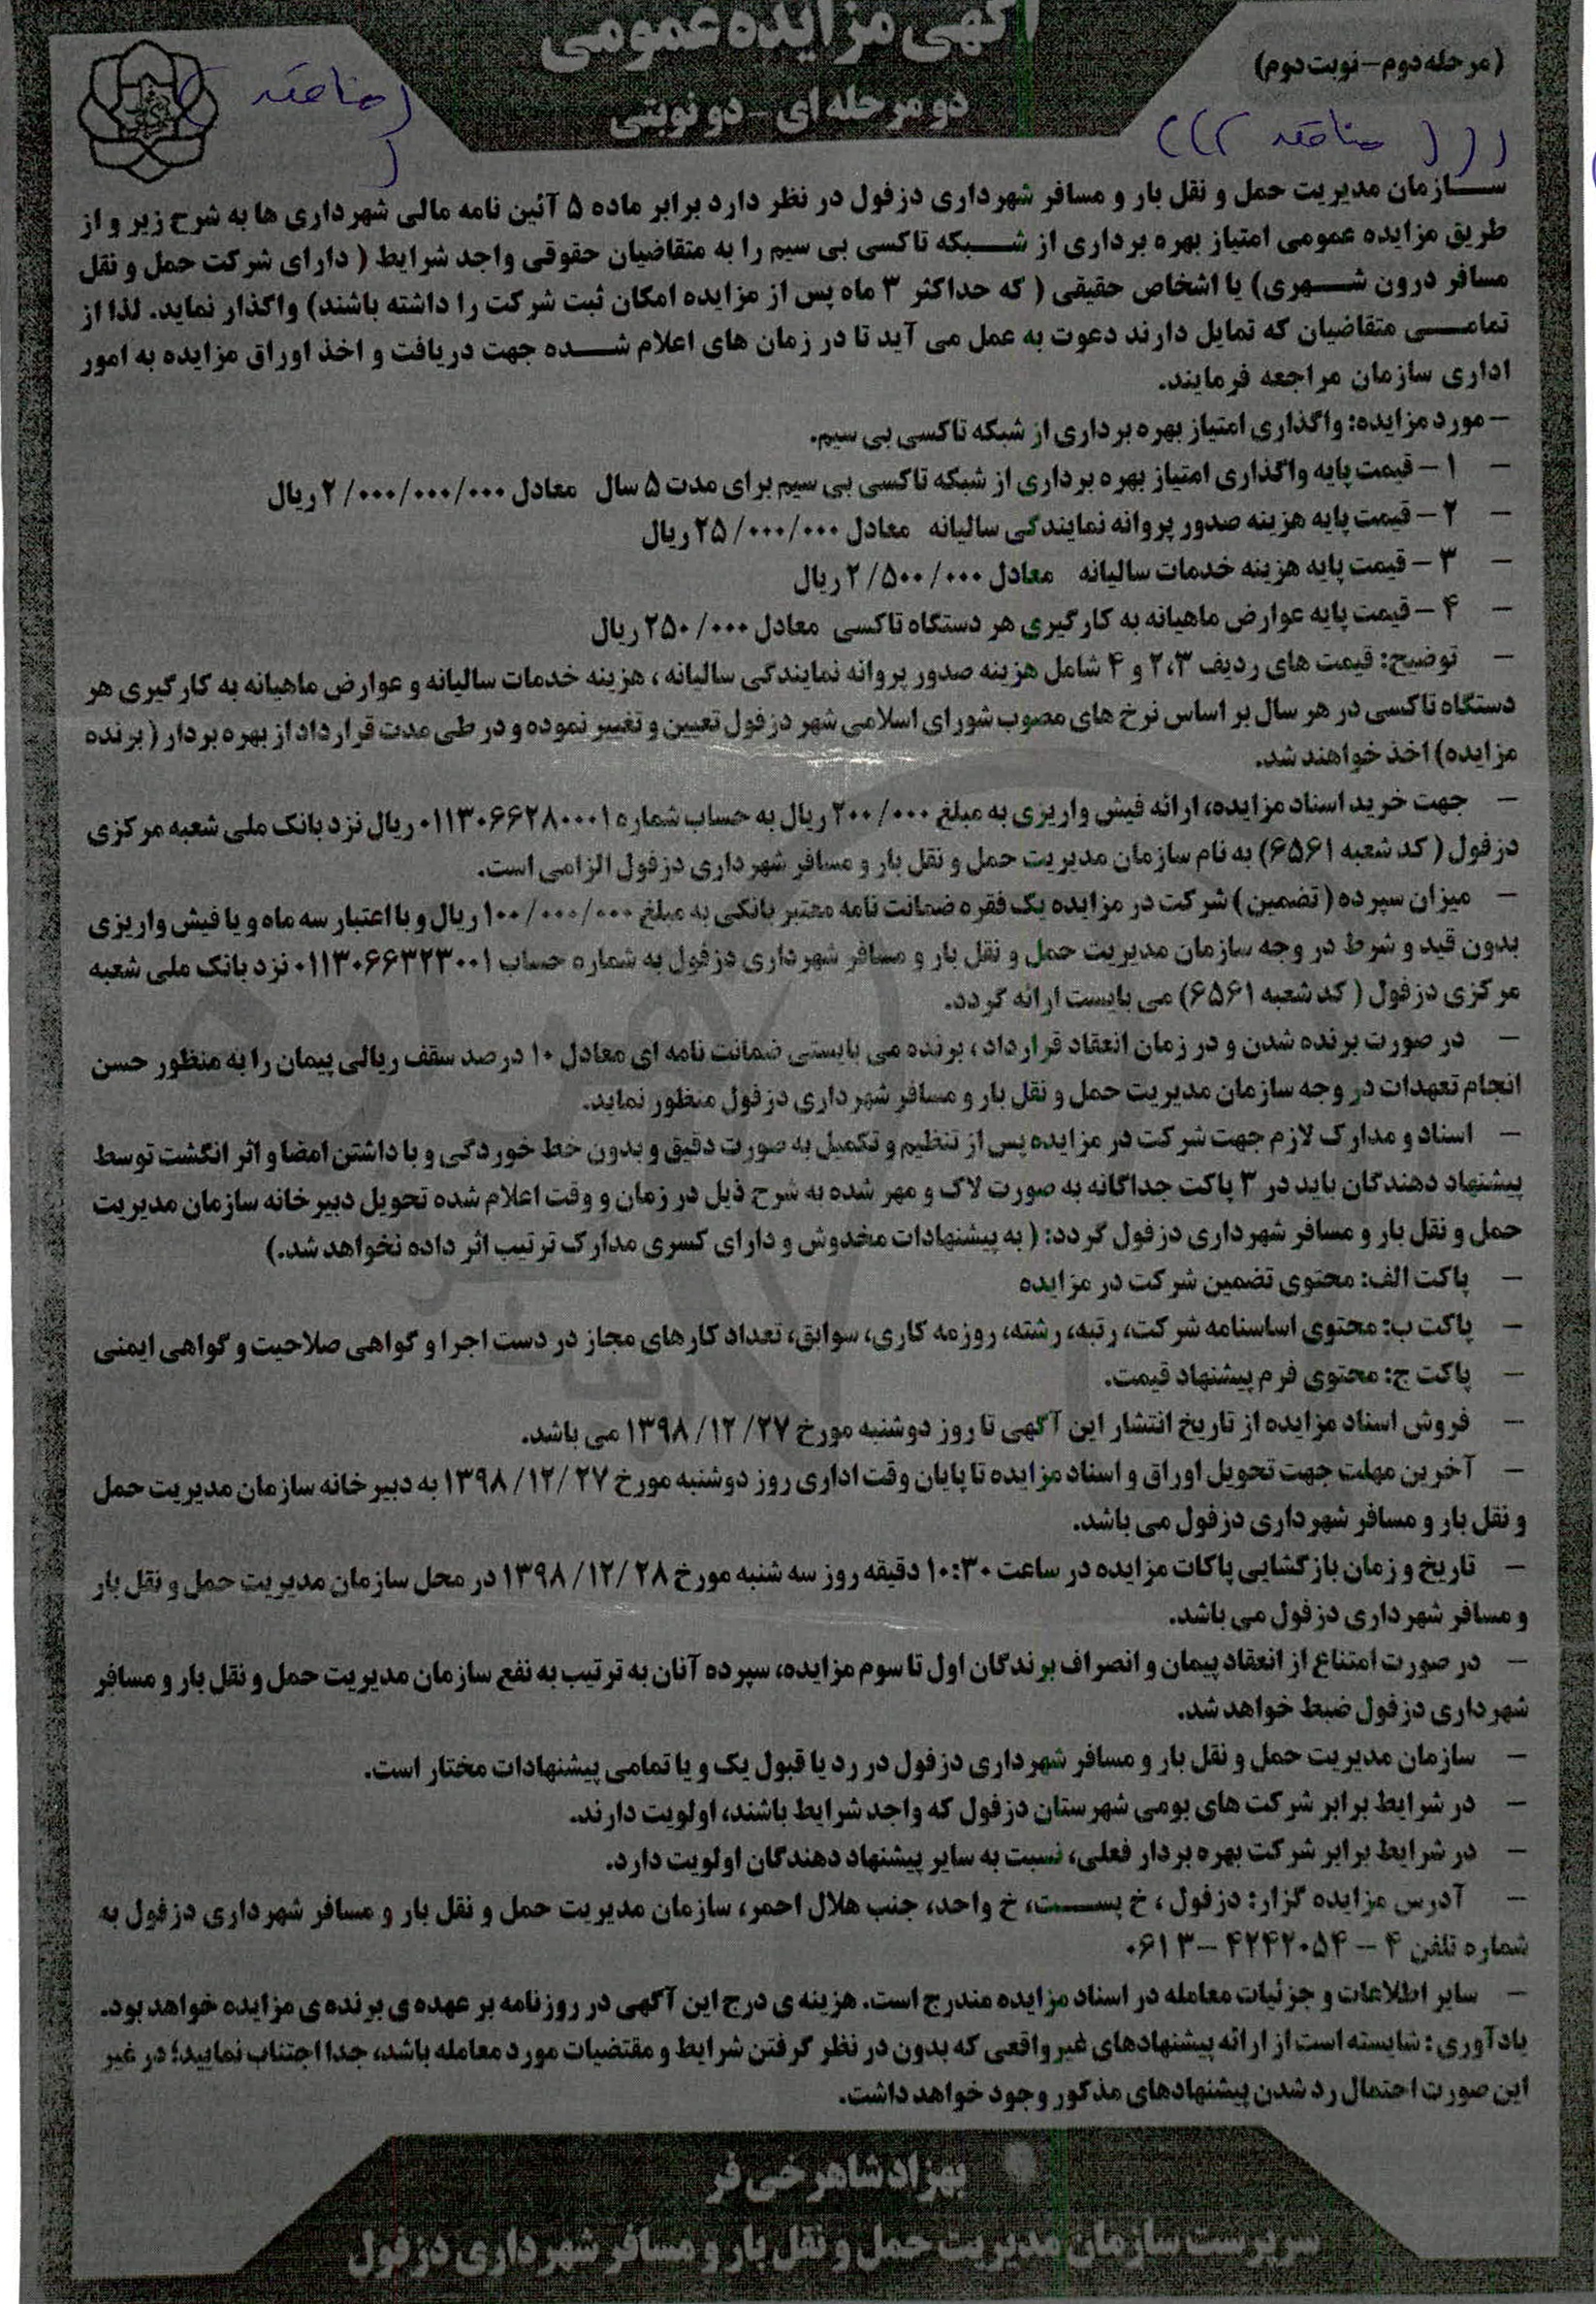 آگهی مزایده عمومی
دو مرحله ای - دو نوبتی
(مرحله دوم - نوبت دوم)
مناقصه
((( مناقصه )))
ســـازمان مدیریت حمل و نقل بار و مسافر شهرداری دزفول در نظر دارد برابر ماده ۵ آئین نامه مالی شهرداری ها به شرح زیر و از
طریق مزایده عمومی امتیاز بهره برداری از شـــبکه تاکسی بی سیم را به متقاضیان حقوقی واجد شرایط ( دارای شرکت حمل و نقل
مسافر درون شـــهری) یا اشخاص حقیقی ( که حداکثر ۳ ماه پس از مزایده امکان ثبت شرکت را داشته باشند) واگذار نماید. لذا از
تمامـــی متقاضیان که تمایل دارند دعوت به عمل می آید تا در زمان های اعلام شـــده جهت دریافت و اخذ اوراق مزایده به امور
اداری سازمان مراجعه فرمایند.
- مورد مزایده: واگذاری امتیاز بهره برداری از شبکه تاکسی بی سیم.
- ۱ - قیمت پایه واگذاری امتیاز بهره برداری از شبکه تاکسی بی سیم برای مدت ۵ سال معادل ۲/۰۰۰/۰۰۰/۰۰۰ ریال
- ۲ - قیمت پایه هزینه صدور پروانه نمایندگی سالیانه معادل ۲۵/۰۰۰/۰۰۰ ریال
- ۳ - قیمت پایه هزینه خدمات سالیانه معادل ۲/۵۰۰/۰۰۰ ریال
- ۴ - قیمت پایه عوارض ماهیانه به کارگیری هر دستگاه تاکسی معادل ۲۵۰/۰۰۰ ریال
- توضیح: قیمت های ردیف ۲،۳ و ۴ شامل هزینه صدور پروانه نمایندگی سالیانه ، هزینه خدمات سالیانه و عوارض ماهیانه به کارگیری هر
دستگاه تاکسی در هر سال بر اساس نرخ های مصوب شورای اسلامی شهر دزفول تعیین و تغییر نموده و در طی مدت قرارداد از بهره بردار ( برنده
مزایده) اخذ خواهند شد.
- جهت خرید اسناد مزایده، ارائه فیش واریزی به مبلغ ۲۰۰/۰۰۰ ریال به حساب شماره ۰۱۱۳۰۶۶۲۸۰۰۰۱ ریال نزد بانک ملی شعبه مرکزی
دزفول ( کد شعبه ۶۵۶۱) به نام سازمان مدیریت حمل و نقل بار و مسافر شهرداری دزفول الزامی است.
- میزان سپرده ( تضمین ) شرکت در مزایده یک فقره ضمانت نامه معتبر بانکی به مبلغ ۱۰۰/۰۰۰/۰۰۰ ریال و با اعتبار سه ماه و یا فیش واریزی
بدون قید و شرط در وجه سازمان مدیریت حمل و نقل بار و مسافر شهرداری دزفول به شماره حساب ۰۱۱۳۰۶۶۳۲۳۰۰۱ نزد بانک ملی شعبه
مرکزی دزفول ( کد شعبه ۶۵۶۱) می بایست ارائه گردد.
- در صورت برنده شدن و در زمان انعقاد قرارداد ، برنده می بایستی ضمانت نامه ای معادل ۱۰ درصد سقف ریالی پیمان را به منظور حسن
انجام تعهدات در وجه سازمان مدیریت حمل و نقل بار و مسافر شهرداری دزفول منظور نماید.
- اسناد و مدارک لازم جهت شرکت در مزایده پس از تنظیم و تکمیل به صورت دقیق و بدون خط خوردگی و با داشتن امضا و اثر انگشت توسط
پیشنهاد دهندگان باید در ۳ پاکت جداگانه به صورت لاک و مهر شده به شرح ذیل در زمان و وقت اعلام شده تحویل دبیرخانه سازمان مدیریت
حمل و نقل بار و مسافر شهرداری دزفول گردد: ( به پیشنهادات مخدوش و دارای کسری مدارک ترتیب اثر داده نخواهد شد.)
- پاکت الف: محتوی تضمین شرکت در مزایده
- پاکت ب: محتوی اساسنامه شرکت، رتبه، رشته، روزمه کاری، سوابق، تعداد کارهای مجاز در دست اجرا و گواهی صلاحیت و گواهی ایمنی
- پاکت ج: محتوی فرم پیشنهاد قیمت.
- فروش اسناد مزایده از تاریخ انتشار این آگهی تا روز دوشنبه مورخ ۱۳۹۸/۱۲/۲۷ می باشد.
- آخرین مهلت جهت تحویل اوراق و اسناد مزایده تا پایان وقت اداری روز دوشنبه مورخ ۱۳۹۸/۱۲/۲۷ به دبیرخانه سازمان مدیریت حمل
و نقل بار و مسافر شهرداری دزفول می باشد.
- تاریخ و زمان بازگشایی پاکات مزایده در ساعت ۱۰:۳۰ دقیقه روز سه شنبه مورخ ۱۳۹۸/۱۲/۲۸ در محل سازمان مدیریت حمل و نقل بار
و مسافر شهرداری دزفول می باشد.
- در صورت امتناع از انعقاد پیمان و انصراف برندگان اول تا سوم مزایده، سپرده آنان به ترتیب به نفع سازمان مدیریت حمل و نقل بار و مسافر
شهرداری دزفول ضبط خواهد شد.
- سازمان مدیریت حمل و نقل بار و مسافر شهرداری دزفول در رد یا قبول یک و یا تمامی پیشنهادات مختار است.
- در شرایط برابر شرکت های بومی شهرستان دزفول که واجد شرایط باشند، اولویت دارند.
- در شرایط برابر شرکت بهره بردار فعلی، نسبت به سایر پیشنهاد دهندگان اولویت دارد.
- آدرس مزایده گزار: دزفول ، خ پســـت، خ واحد، جنب هلال احمر، سازمان مدیریت حمل و نقل بار و مسافر شهرداری دزفول به
شماره تلفن ۴ - ۴۲۴۲۰۵۴ - ۰۶۱۳
- سایر اطلاعات و جزئیات معامله در اسناد مزایده مندرج است. هزینه ی درج این آگهی در روزنامه بر عهده ی برنده ی مزایده خواهد بود.
یادآوری : شایسته است از ارائه پیشنهادهای غیر واقعی که بدون در نظر گرفتن شرایط و مقتضیات مورد معامله باشد، جدا اجتناب نمایید؛ در غیر
این صورت احتمال رد شدن پیشنهادهای مذکور وجود خواهد داشت.
بهزاد شاهرخی فر
سرپرست سازمان مدیریت حمل و نقل بار و مسافر شهرداری دزفول